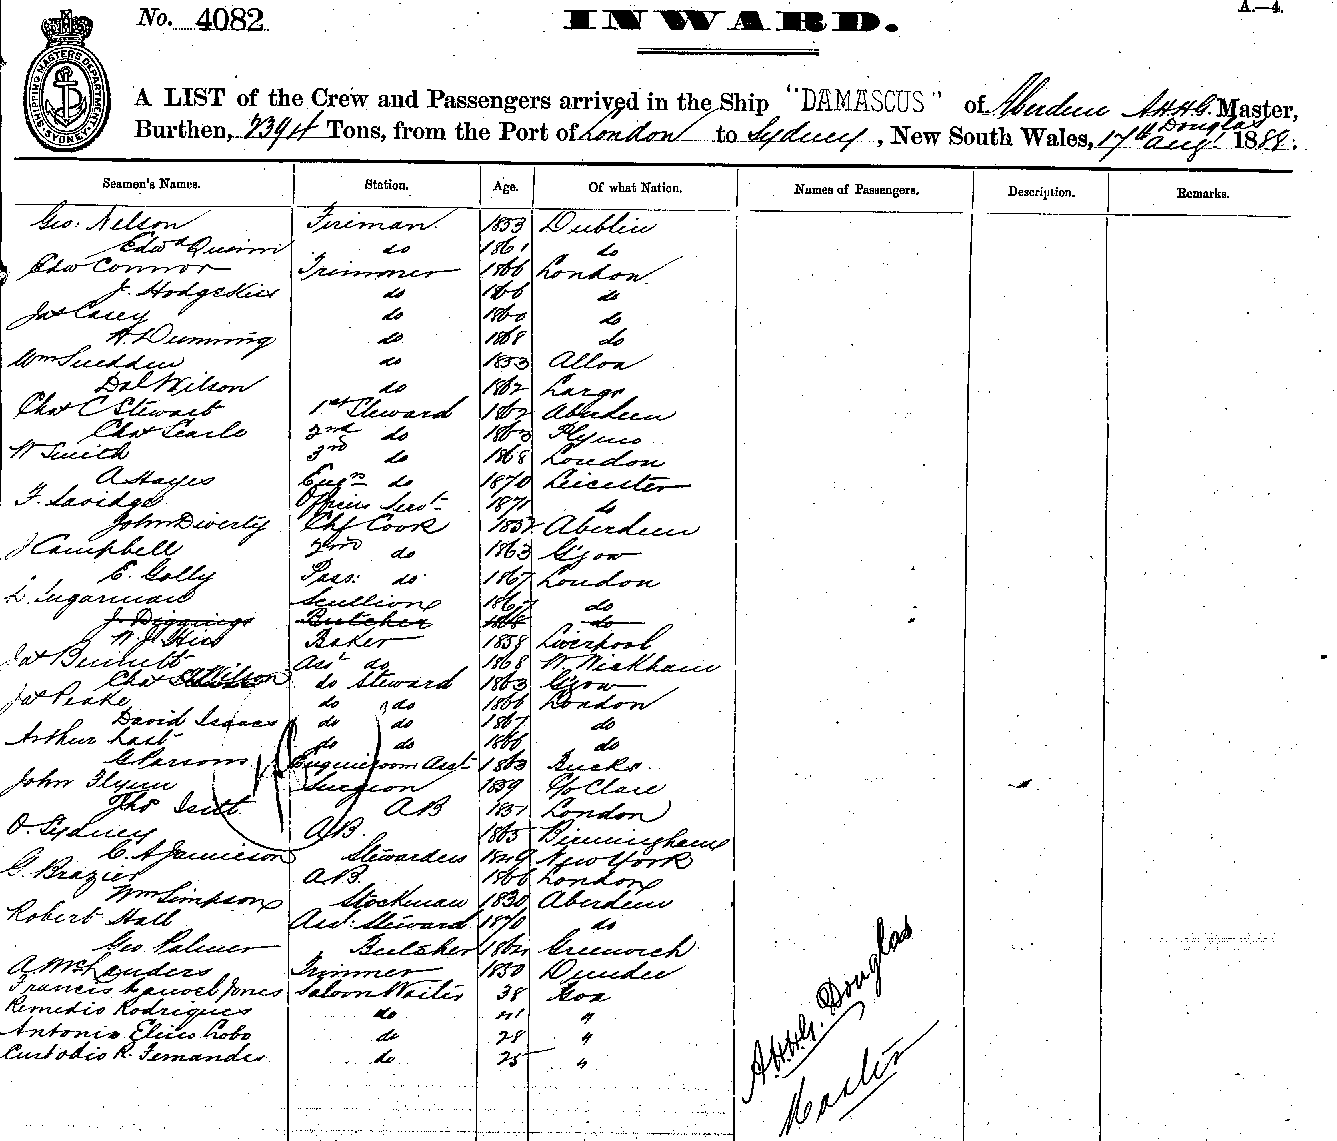 No. 4082
INWARD.
A.—4.
SHIPPING MASTERS DEPARTMENT SYDNEY
A LIST of the Crew and Passengers arrived in the Ship "DAMASCUS" of Aberdeen A.H.H.G. Douglas Master,
Burthen, 2394 Tons, from the Port of London to Sydney, New South Wales, 17th Aug 1888.
Seamen's Names. Station. Age. Of what Nation. Names of Passengers. Description. Remarks.
Geo: Nelson Fireman 1853 Dublin
Edwd Quinn do 1861 do
Edw Connor Trimmer 1866 London
J. Hodgskiss do 1866 do
Jas Casey do 1860 do
A. Dunning do 1868 do
Wm Snedden do 1853 Alloa
Dal Wilson do 1862 Largo
Chas C Stewart 1st Steward 1862 Aberdeen
Chas Searle 2nd do 1863 Plymo
W Smith 3rd do 1868 London
A Hayes Engrs do 1870 Leicester
F. Savidge Officers Servt 1871 do
John Diverty Chf Cook 1852 Aberdeen
J Campbell 2nd do 1863 Gsow
E. Golly Pass: do 1867 London
L. Sugarman Scullion 1867 do
J. Diggings Butcher 1868 do
W. J. Baker 1858 Liverpool
Jas Bennett Asst do 1868 W. Wickham
Chas Wilson do Steward 1863 Gsow
Jas Peake do do 1866 London
David Isaacs do do 1867 do
Arthur Last do do 1866 do
G Parsons Engineroom Asst 1863 Bucks
John Flynn Surgeon 1859 C/o Clare
Thos Isitt AB 1851 London
O. Sydney A.B. 1865 Birmingham
C. A Jamieson Stewardess 1849 New York
G. Brazier A.B. 1866 London
Wm Simpson Stockman 1830 Aberdeen
Robert Hall Asst Steward 1870 do
Geo Palmer Butcher 1862 Greenwich
A McLanders Trimmer 1850 Dundee
Francis Manoel Jones Saloon Waiter 38 Goa
Remedio Rodrigues do 41 "
Antonio Elias Lobo do 28 "
Custodio R. Fernandes do 25 "
A.H.H.G. Douglas
Master